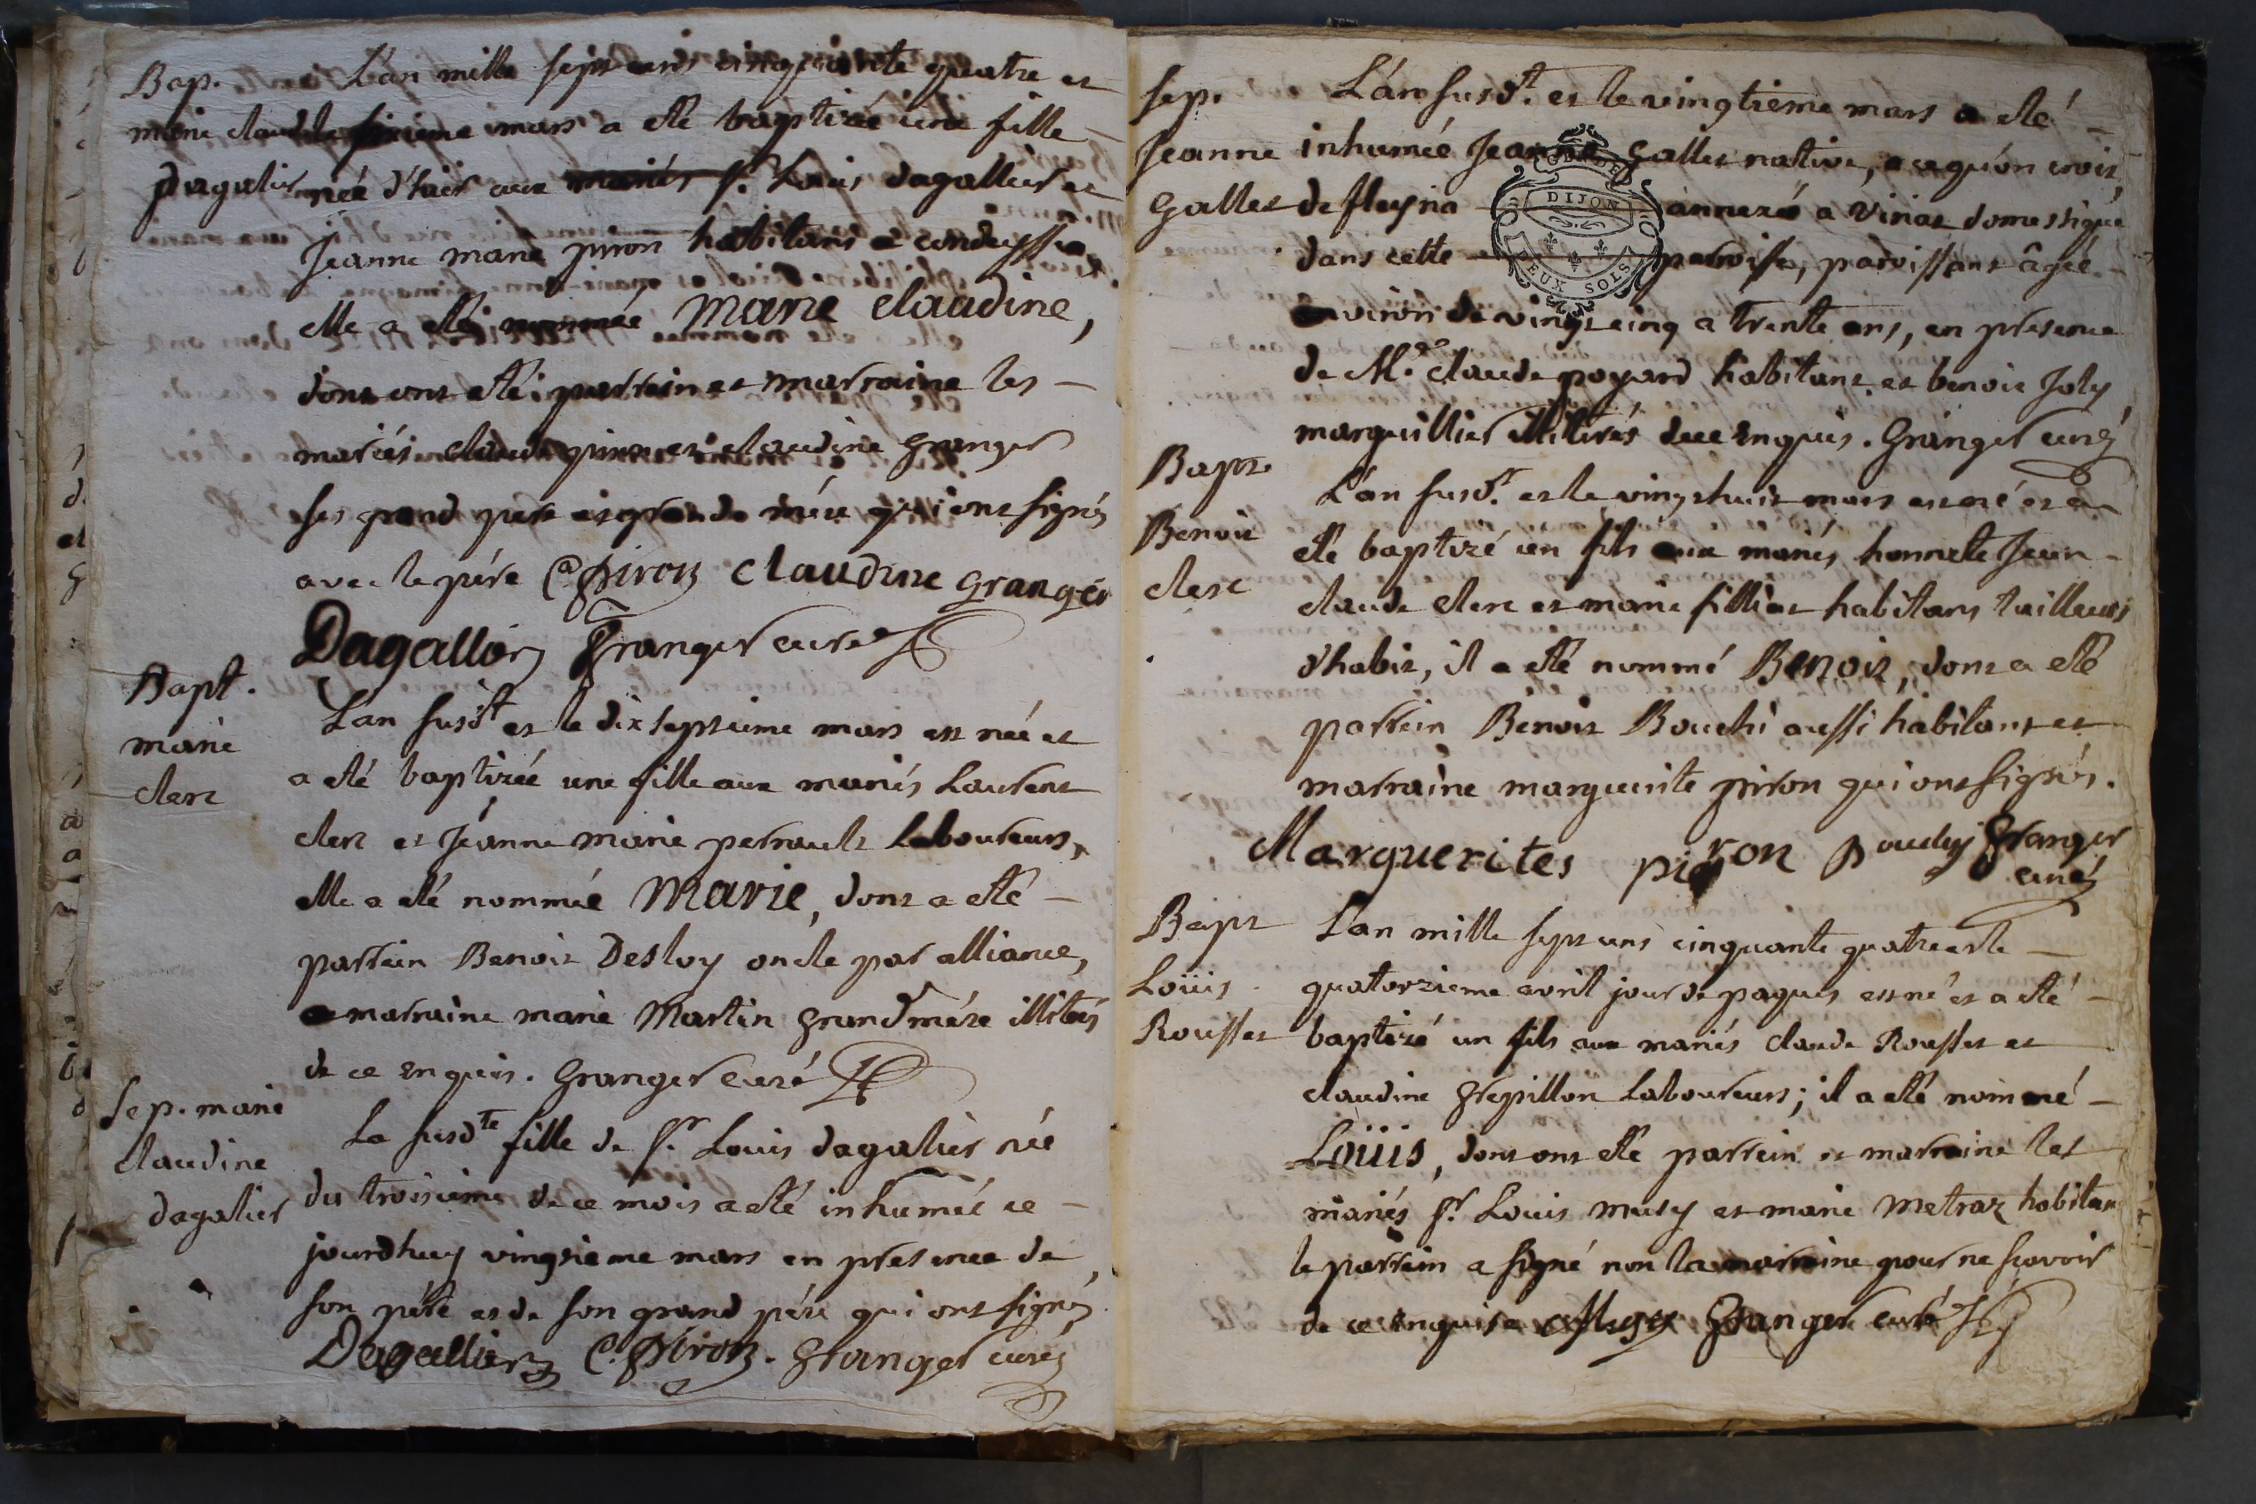 Bap.
marie claudine
Dagalier
L'an mille sept cents cinquante quatre et
le sixieme mars a eté baptizée une fille
née d'hier aux mariés sr. Louis dagallier et
Jeanne marie piron habitans a condeyssia
elle a eté nommée Marie Claudine,
dont ont eté parrein et marraine les
mariés claude piron et claudine Granger
ses grand pere et grande mére qui ont signés
avec le pére C piron claudine granger
Dagallier Granger curé
Bapt.
marie
clerc
L'an susdt et le dix septieme mars est née et
a eté baptizée une fille aux mariés Laurent
clerc et Jeanne marie perrault Laboureurs,
elle a eté nommée Marie, dont a eté
parrein Benoit Desloy oncle par alliance,
et marraine marie Martin grand'mére illiterés
de ce enquis. Granger curé
Sep. marie
claudine
dagalier
La susdte fille de sr. Louis dagalier née
du troisieme de ce mois a eté inhumée ce
jourdhuy vingtieme mars en presence de
son pére et de son grand pére qui ont signés
Dagallier C. piron. Granger curé
Sep.
Jeanne
Gallet
L'an susdt. et le vingtieme mars a eté
inhumée Jeanne Gallet native, a ce qu'on croit,
de fleyria annexe a Viriat domestique
dans cette paroisse, paroissant âgée
environ de vingt cinq a trente ans, en presence
de Me. Claude poyard habitant et benoit Joly
marguillier illiterés de ce enquis. Granger curé
GEN. DE
DIJON
DEUX SOLS
Bapt.
Benoit
clerc
L'an susdt. et le vingt huit mars est né et a
eté baptizé un fils aux mariés honnete Jean
claude clerc et marie filliat habitans tailleurs
d'habit, il a eté nommé Benoit, dont a eté
parrein Benoit Bouchi aussi habitant et
marraine marguerite piron qui ont signés.
Marguerites piron Granger
curé
Bapt
Loüis
Rousset
L'an mille sept cens cinquante quatre et le
quatorzieme avril jour de paques est né et a eté
baptizé un fils aux mariés claude Rousset et
claudine Grepillon Laboureurs; il a eté nommé
Loüis, dont ont eté parrein et marraine les
mariés sr. Louis musy et marie Metraz habitans
le parrein a signé non la marraine pour ne sçavoir
de ce enquise Musy Granger curé